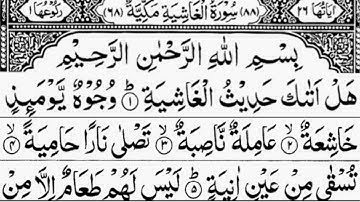 اٰيَاتُهَا ٢٦ (٨٨) سُوْرَةُ الْغَاشِيَةِ مَكِّيَّةٌ (٦٨) رُكُوْعُهَا ١
بِسْمِ اللهِ الرَّحْمٰنِ الرَّحِيْمِ
هَلْ اَتٰىكَ حَدِيْثُ الْغَاشِيَةِ ۝١ وُجُوْهٌ يَّوْمَىِٕذٍ
خَاشِعَةٌ ۝٢ عَامِلَةٌ نَّاصِبَةٌ ۝٣ تَصْلٰى نَارًا حَامِيَةً ۝٤
تُسْقٰى مِنْ عَيْنٍ اٰنِيَةٍ ۝٥ لَيْسَ لَهُمْ طَعَامٌ اِلَّا مِنْ